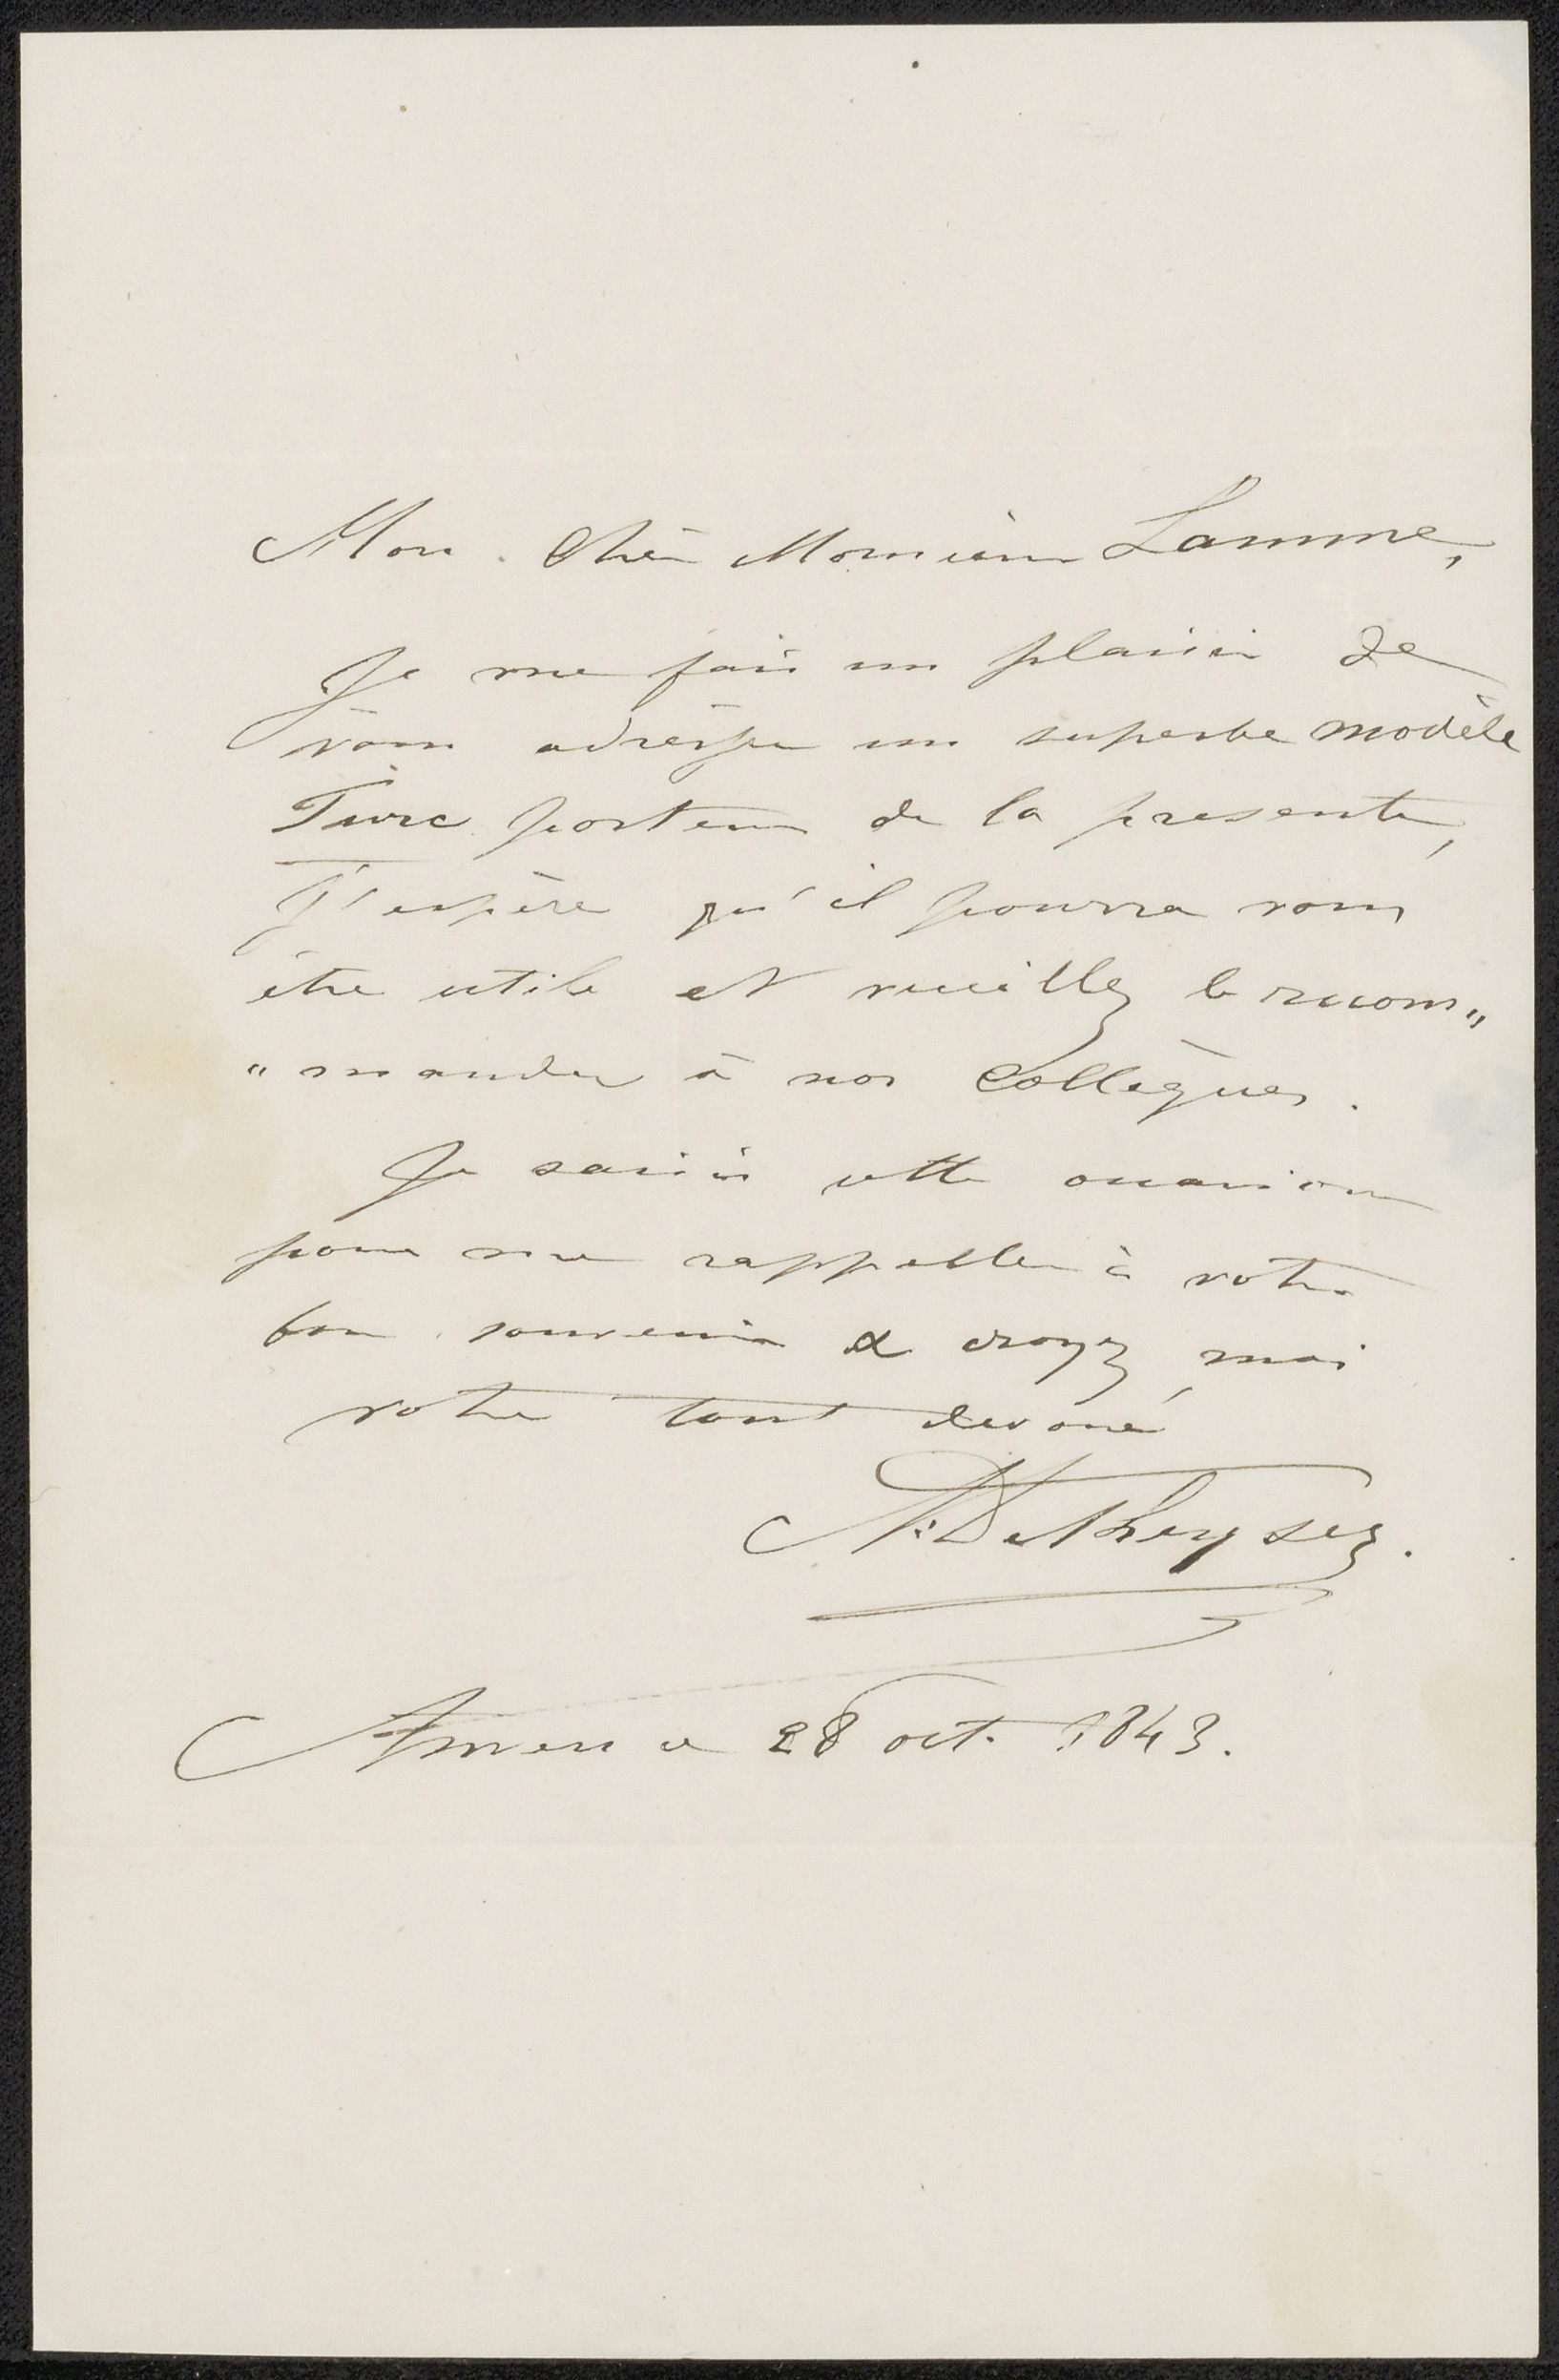 Mon Cher Monsieur Lamme,
Je me fais un plaisir de
vous adresser un superbe modèle
Turc porteur de la presente,
J'espère qu'il pourra vous
être utile et veuillez le recom„
„mander à nos Collègues.
Je saisis cette occasion
pour me rappeller à votre
bon souvenir & croyez moi
votre tout devoué
N: De Keyser.
Anvers ce 28 oct. 1843.